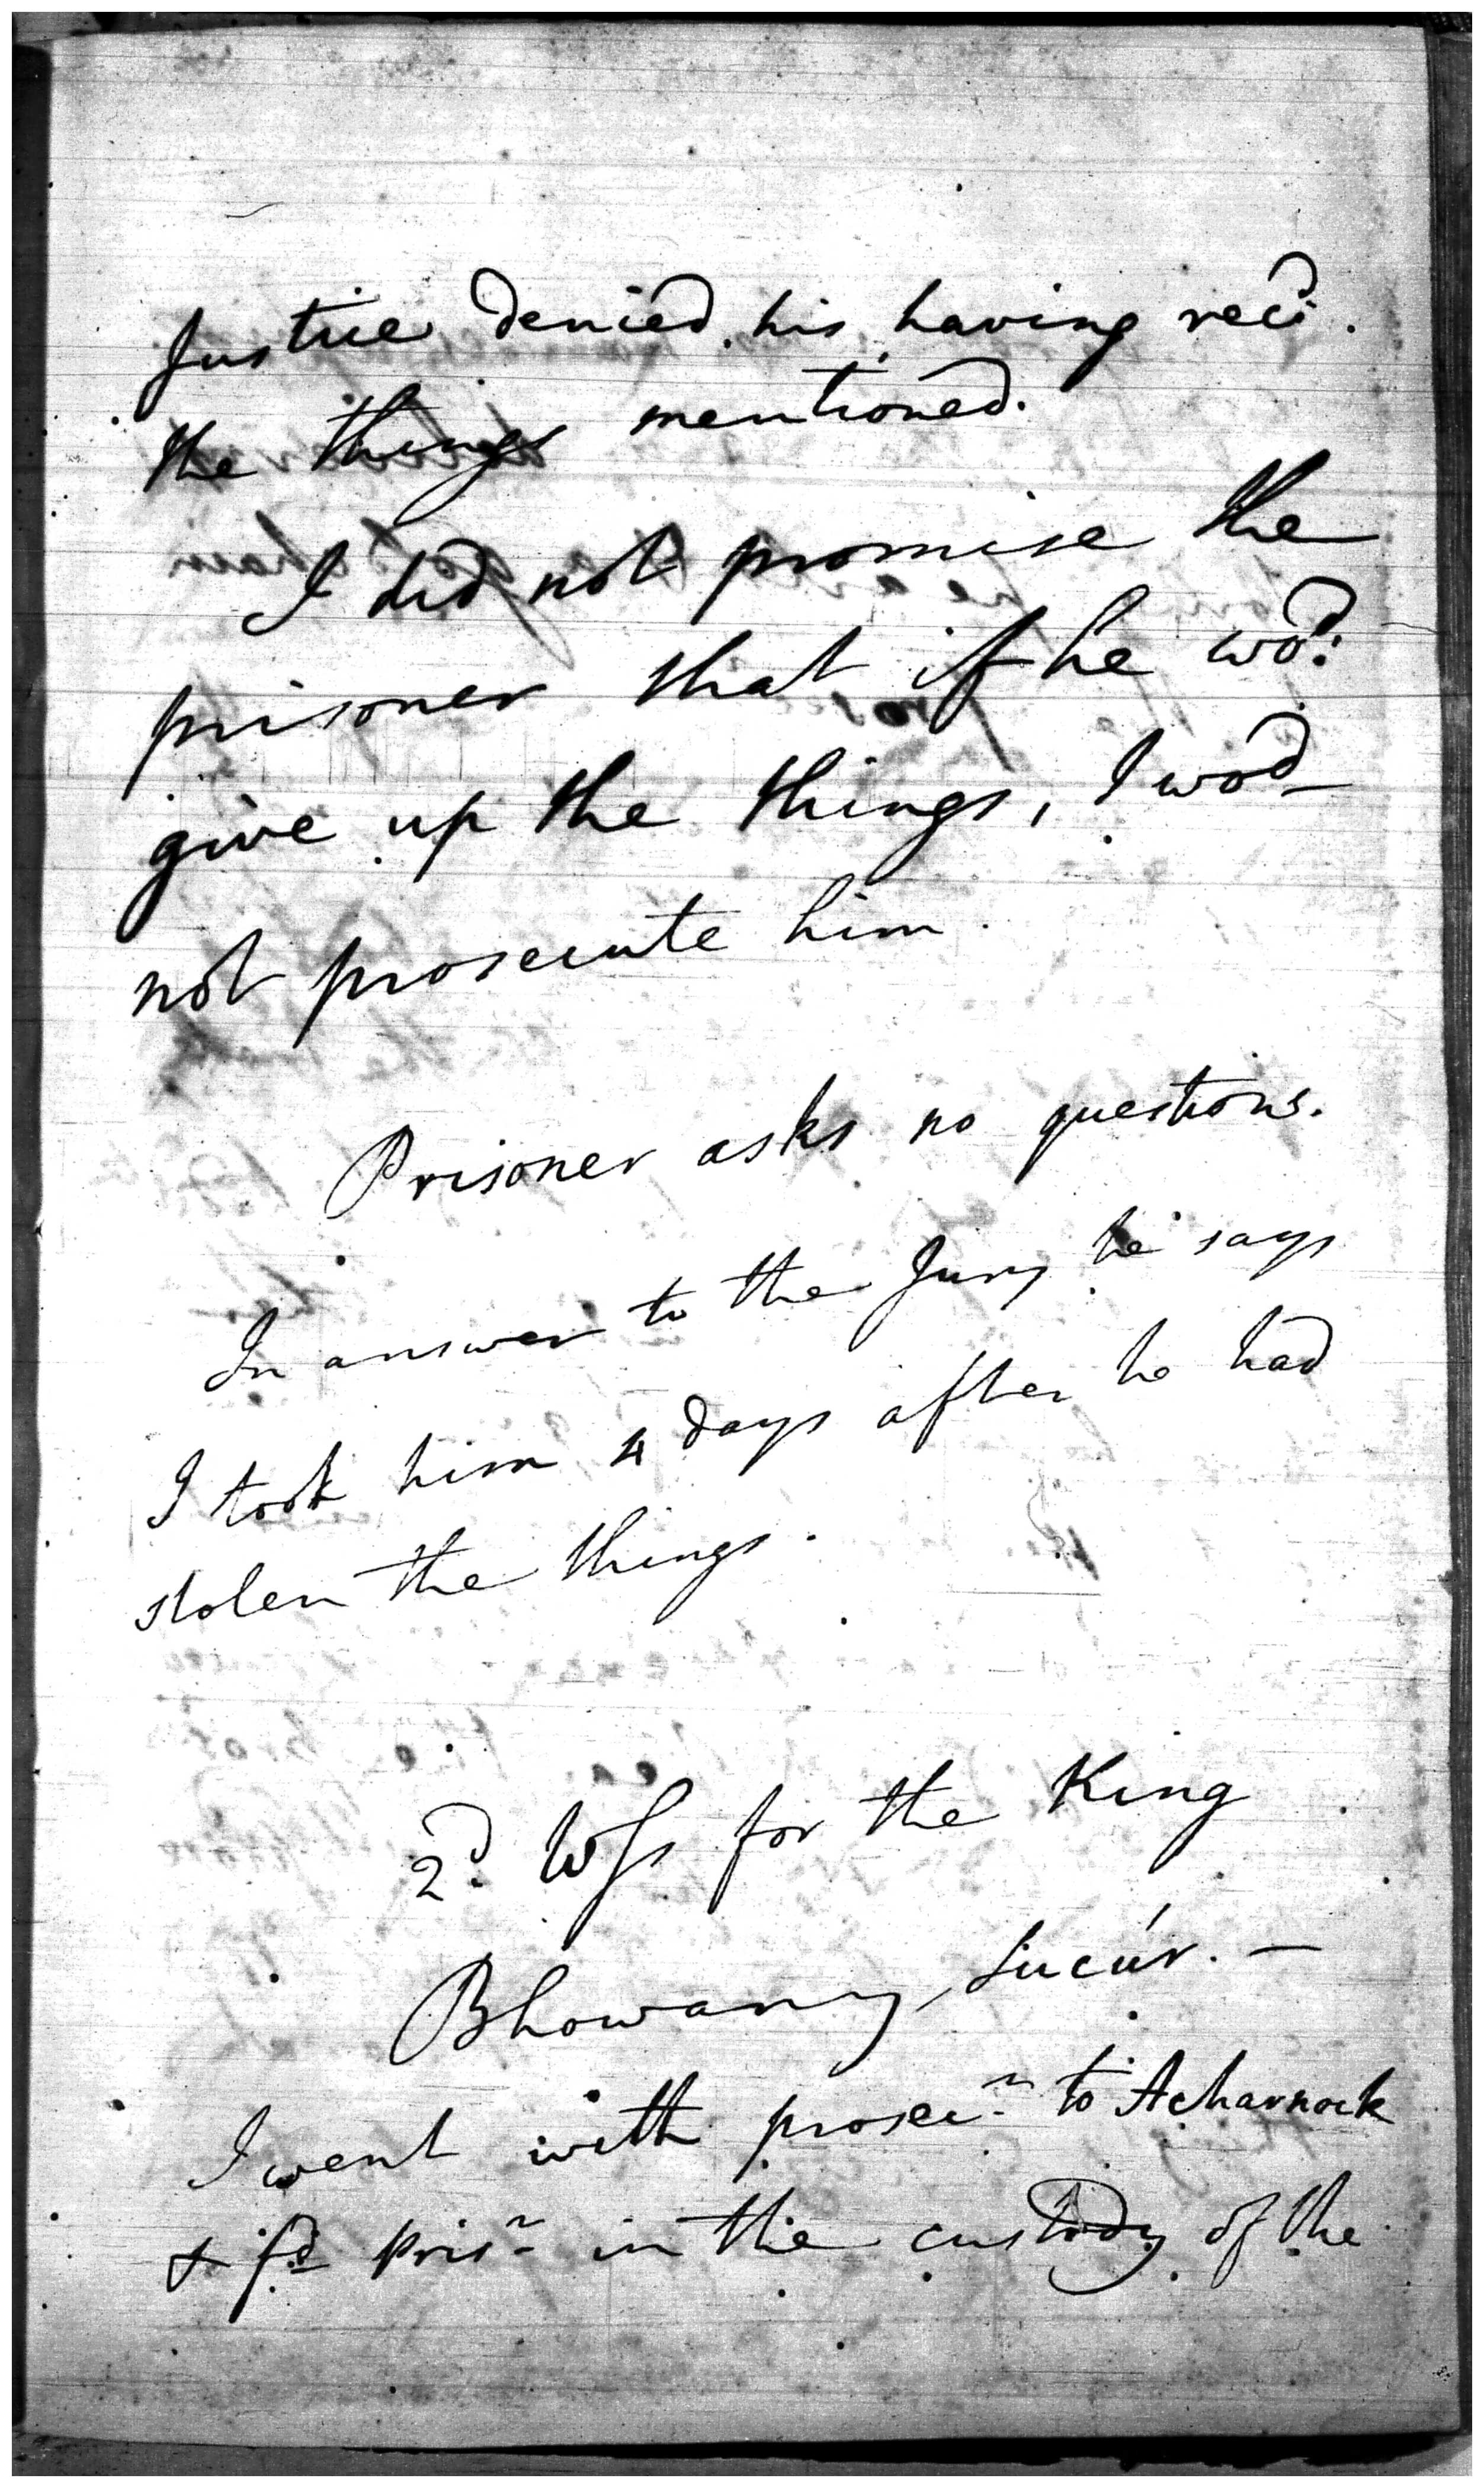 Justice denied his having recd.
the things mentioned.
I did not promise the
prisoner that if he wod:
give up the things, I wod
not prosecute him.
Prisoner asks no questions.
In answer to the Jury he says
I took him 4 days after he had
stolen the things.
2d. Wss for the King
Bhowanny Sucúr. —
I went with prosecr to Acharnock
& fd prisr in the custody of the